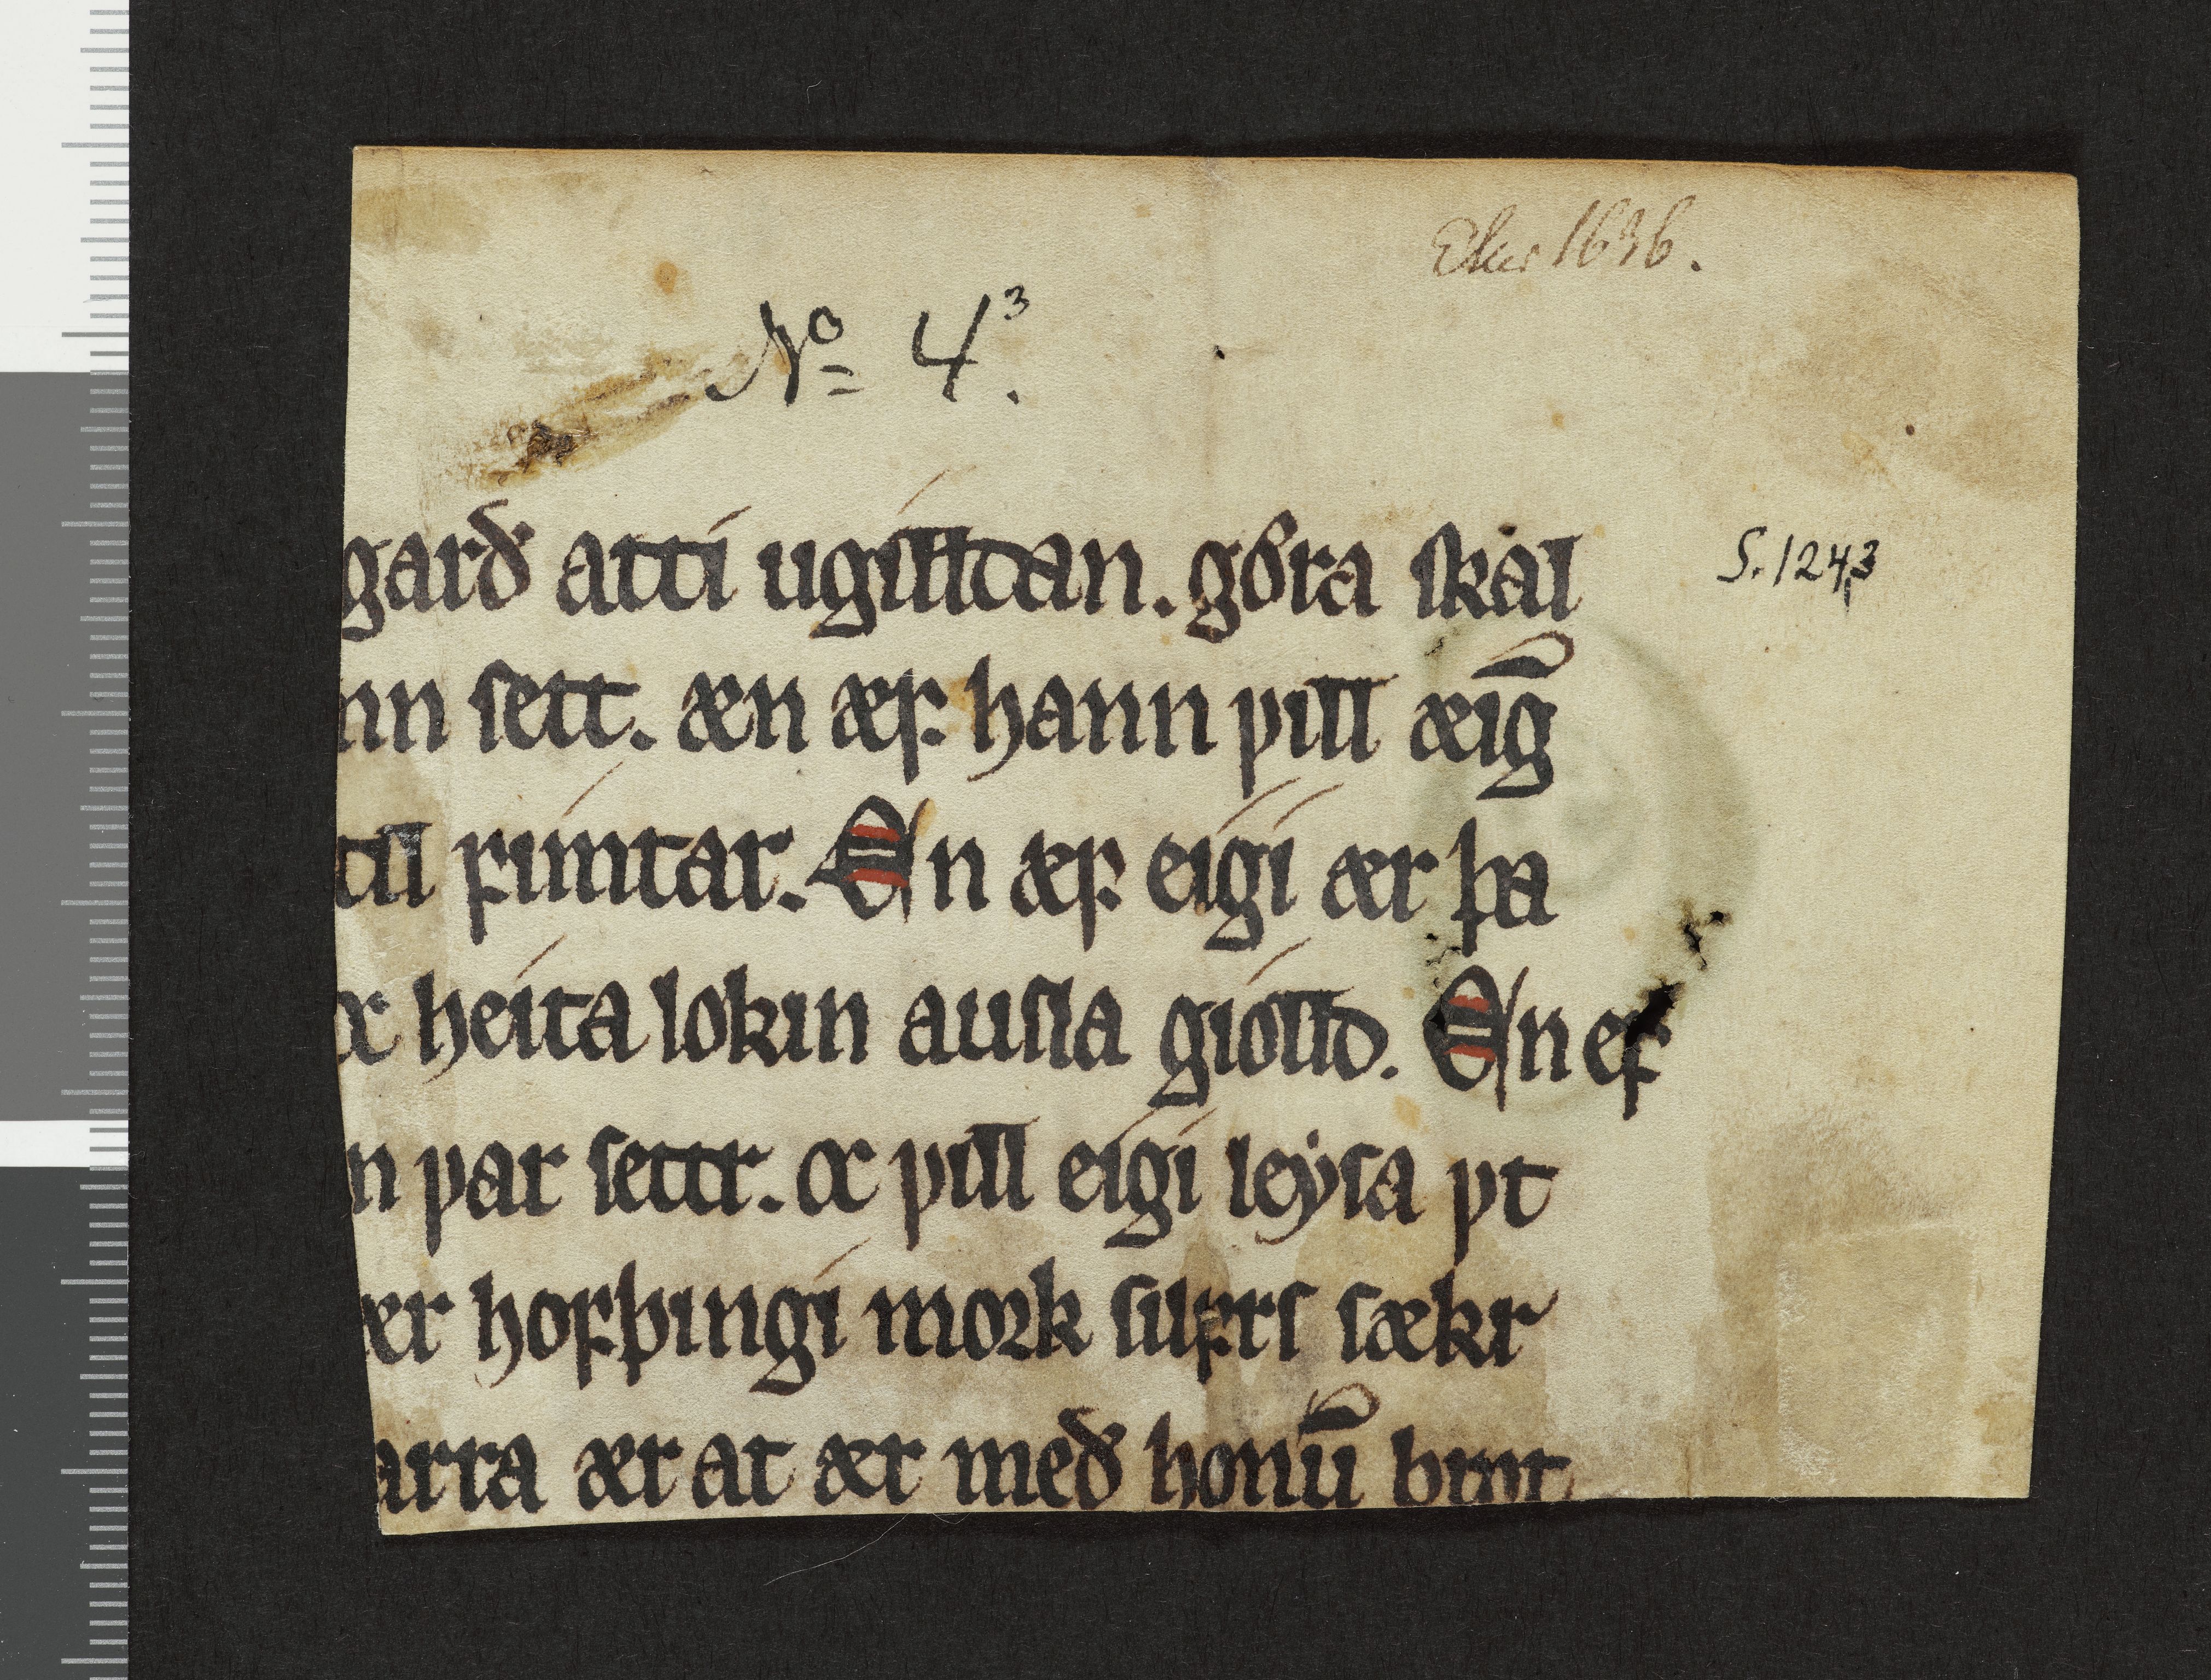 Eker 1636.
No 4³.
garð atti ugilldan. gǒra skal
S. 124,3
nn sett. æn æf hann vill æig̅
till fimtar. En æf eigi ær þa
oc heita lokin ausla giolld. En ef
n var settr. oc vill eigi leysa vt
ær hofþingi mork silfrs sækr
arra ær at ær með honu̅ brot